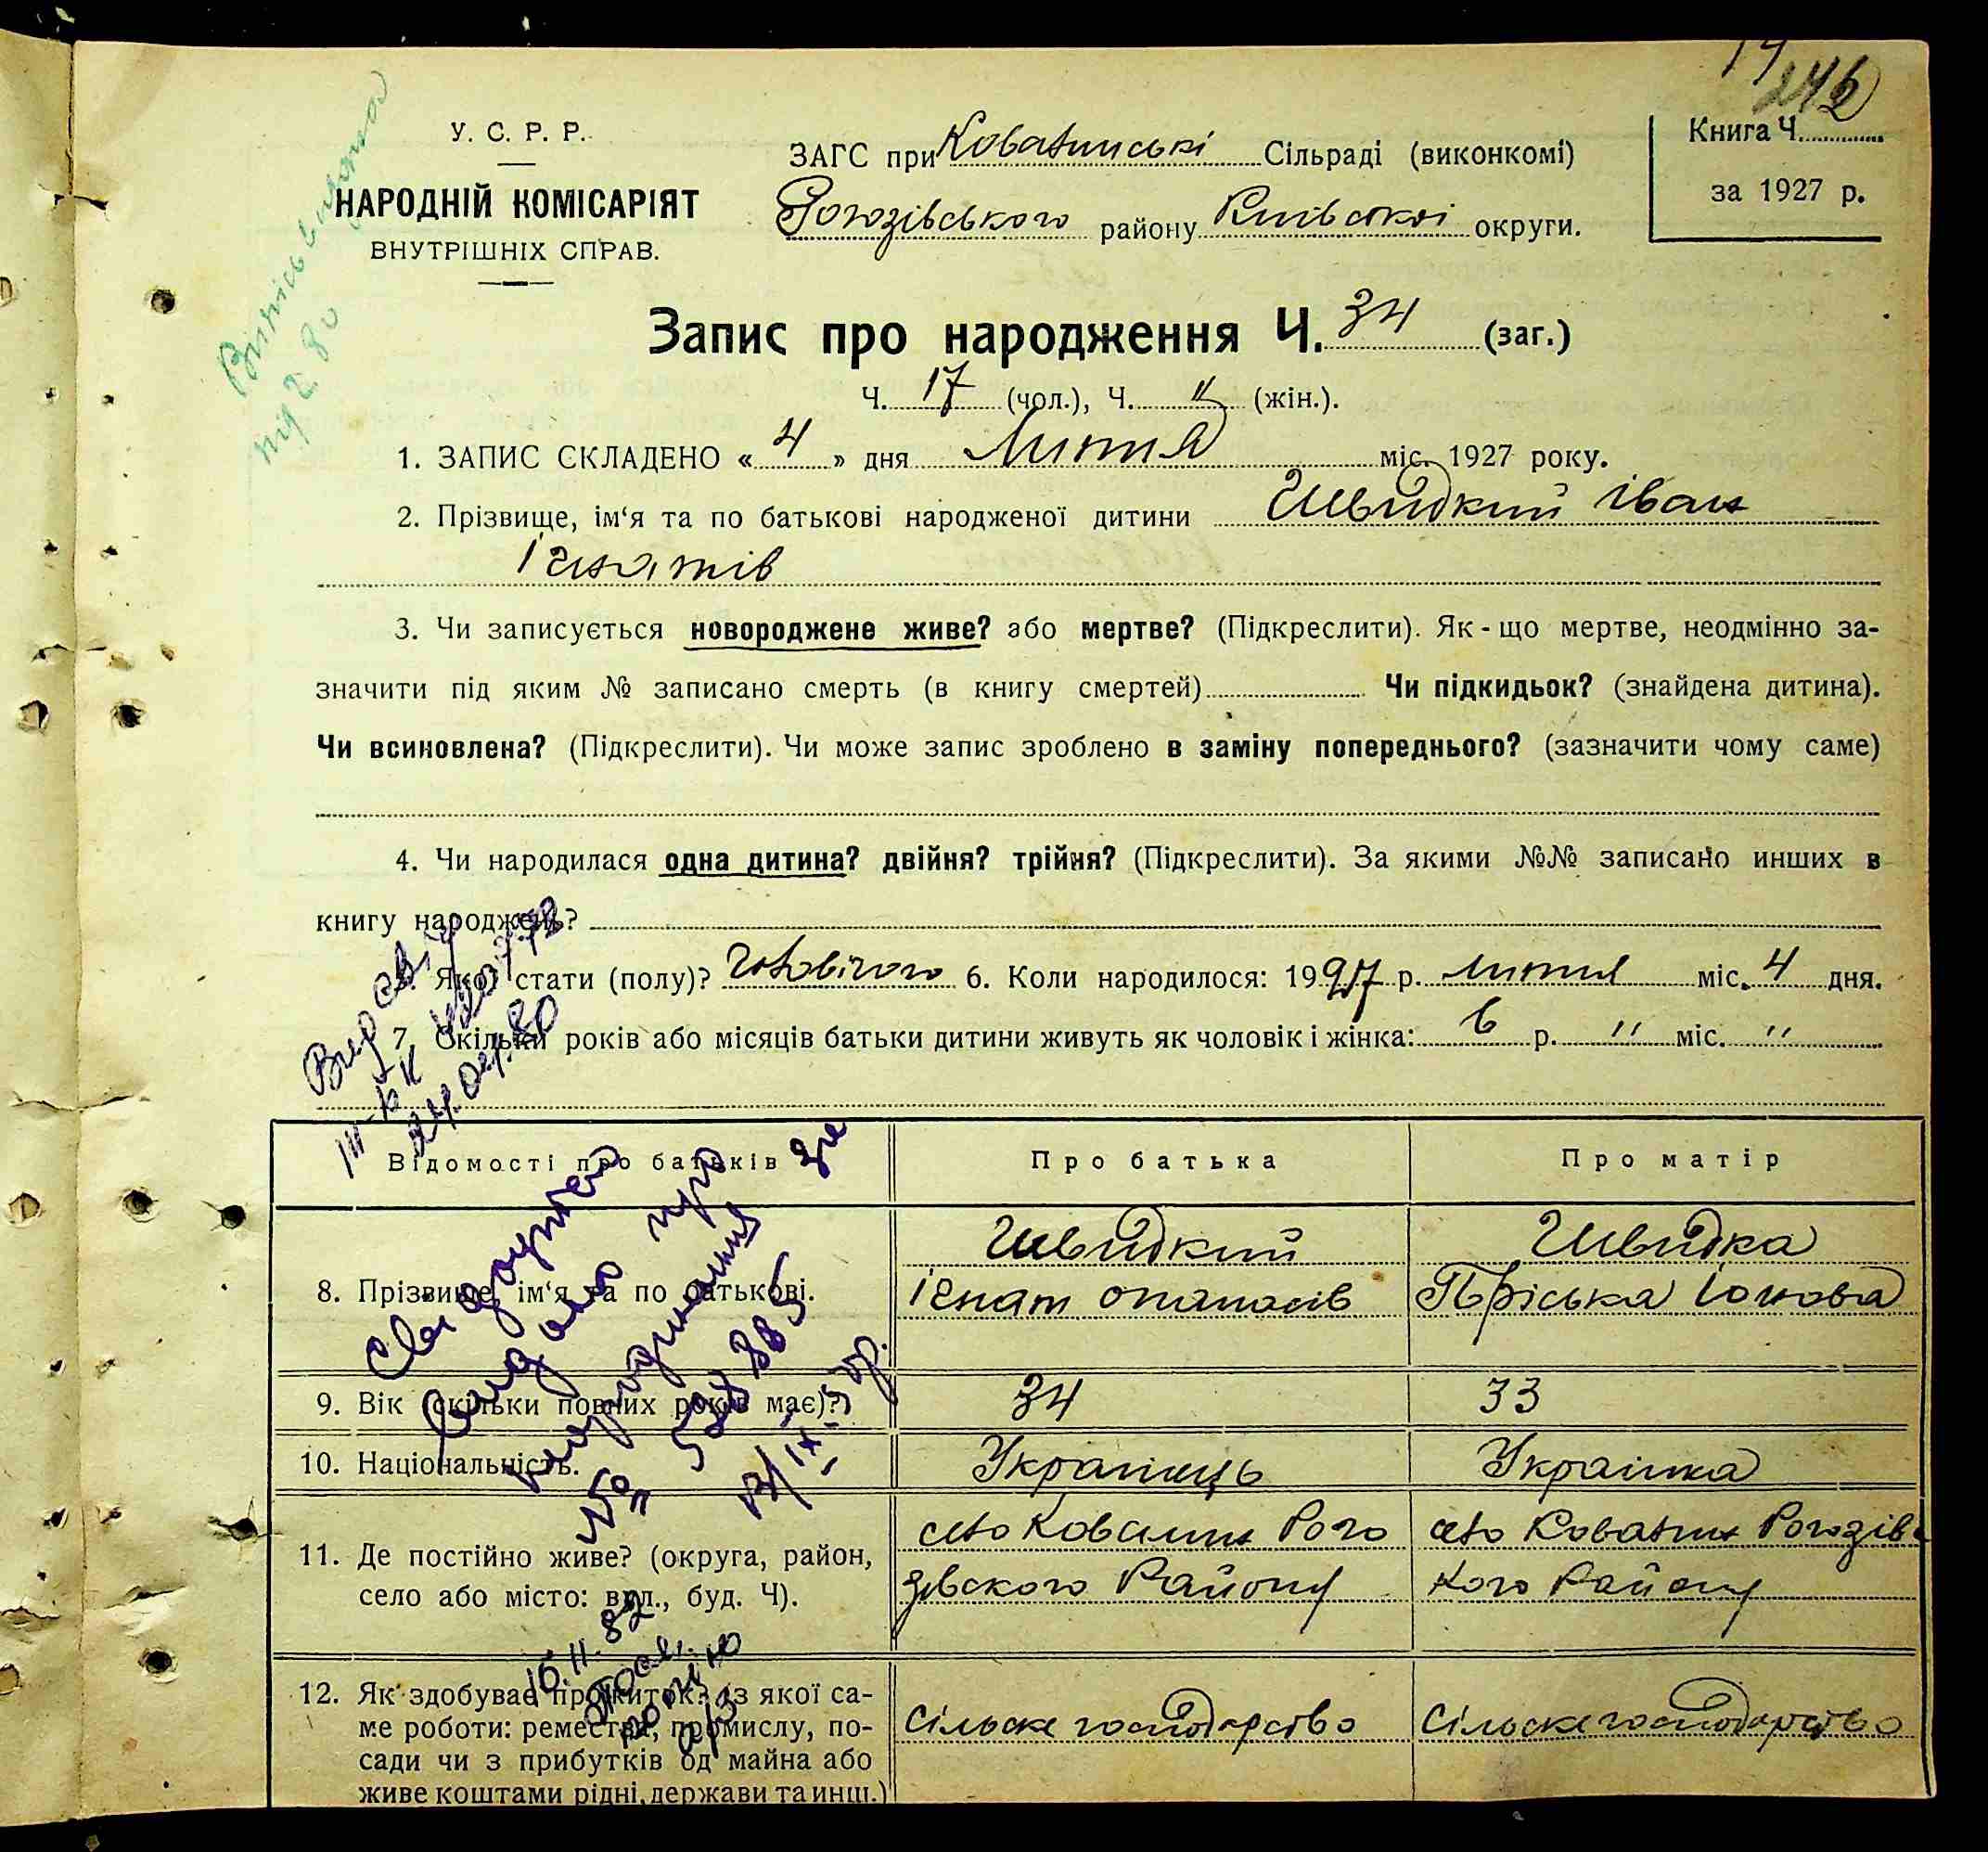 246
У. С. Р. Р.
НАРОДНІЙ КОМІСАРІЯТ
ВНУТРІШНІХ СПРАВ.
ЗАГС при Ковалинські Сільраді (виконкомі)
Рогозівського району Київскої округи.
Книга Ч.
за 1927 р.
Запис про народження Ч. 34 (заг.)
Ч. 17 (чол.), Ч. " (жін.).
1. ЗАПИС СКЛАДЕНО « 4 » дня Липня міс. 1927 року.
2. Прізвище, ім‘я та по батькові народженої дитини Швидкий Іван
Ігнатів
3. Чи записується новороджене живе? або мертве? (Підкреслити). Як-що мертве, неодмінно за-
значити під яким № записано смерть (в книгу смертей) Чи підкидьок? (знайдена дитина).
Чи всиновлена? (Підкреслити). Чи може запис зроблено в заміну попереднього? (зазначити чому саме)
4. Чи народилася одна дитина? двійня? трійня? (Підкреслити). За якими №№ записано инших в
книгу народжень?
5. Якої стати (полу)? Чоловічого 6. Коли народилося: 1927 р. липня міс. 4 дня.
7. Скільки років або місяців батьки дитини живуть як чоловік і жінка: 6 р. " міс. "
24.04.80
Відомості про батьків
Про батька
Про матір
8. Прізвище, ім‘я та по батькові.
Швидкий
Ігнат опанасів
Швидка
Пріська Іонова
9. Вік (скільки повних років має)?
34
33
10. Національність.
Українець
Українка
11. Де постійно живе? (округа, район,
село або місто: вул., буд. Ч).
село Ковалин Рого
зівского Району
село Ковалин Рогозівс
кого Району
12. Як здобуває прожиток? (з якої са-
ме роботи: ремества, промислу, по-
сади чи з прибутків од майна або
живе коштами рідні, держави та инш.)
Сільске господарство
Сільске господарство
Свидоцтво
видано про
народження за
16.11.82